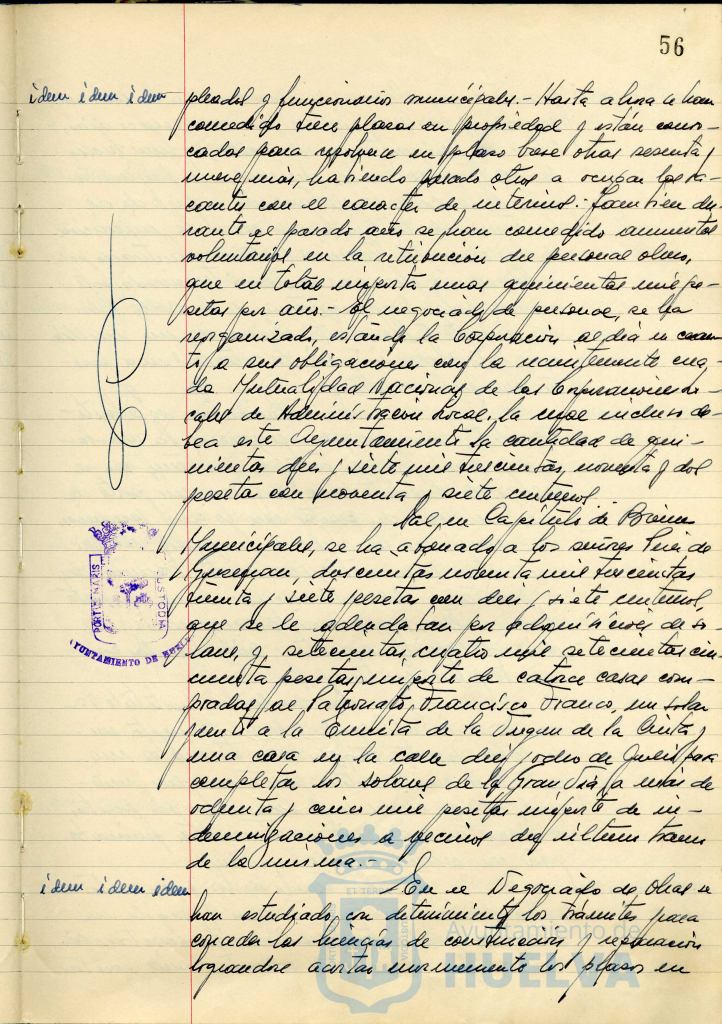 56
idem idem idem
pleados y funcionarios municipales.- Hasta ahora se han
concedido trece plazas en propiedad y están convo-
cadas para resolverse en plazo breve otras sesenta y
nueve más, habiendo pasado otros a ocupar las va-
cantes con el carácter de interinos.- También du-
rante el pasado año se han concedido aumentos
voluntarios en la retribución del personal obrero,
que en total importa unas quinientas mil pe-
setas por año.- El negociado de personal, se ha
reorganizado, estando la Corporación al día en cuan-
to a sus obligaciones con la recientemente crea-
da Mutualidad Nacional de las Corporaciones Lo-
cales de Administración Local, la cual incluso de-
bea este Ayuntamiento la cantidad de qui-
nientas diez y siete mil trescientas, noventa y dos
peseta con noventa y siete centimos.
en Capítulo de Bienes
Municipales, se ha abonado a los señores de
Guzman, doscientas noventa mil trescientas
treinta y siete pesetas con diez y siete centimos,
que se le adeudaban por adquisiciones de so-
lares, y setecientas cuatro mil setecientas cin-
cuenta pesetas, importe de catorce casas com-
pradas al Patronato Francisco Franco, un solar
junto a la Ermita de la Virgen de la Cinta y
una casa en la calle diez y ocho de Julio para
completar los solares de la Gran Via, a más de
ochenta y cinco mil pesetas importe de in-
demnizaciones a vecinos del último tramo
de la misma.-
idem idem idem
En el Negociado de Obras se
han estudiado con detenimiento los trámites para
conceder las licencias de construcción y reparación
lograndose acortar los plazos en
PORTUS MARIS
CUSTODIA
AYUNTAMIENTO DE HUELVA
Ayuntamiento de
HUELVA